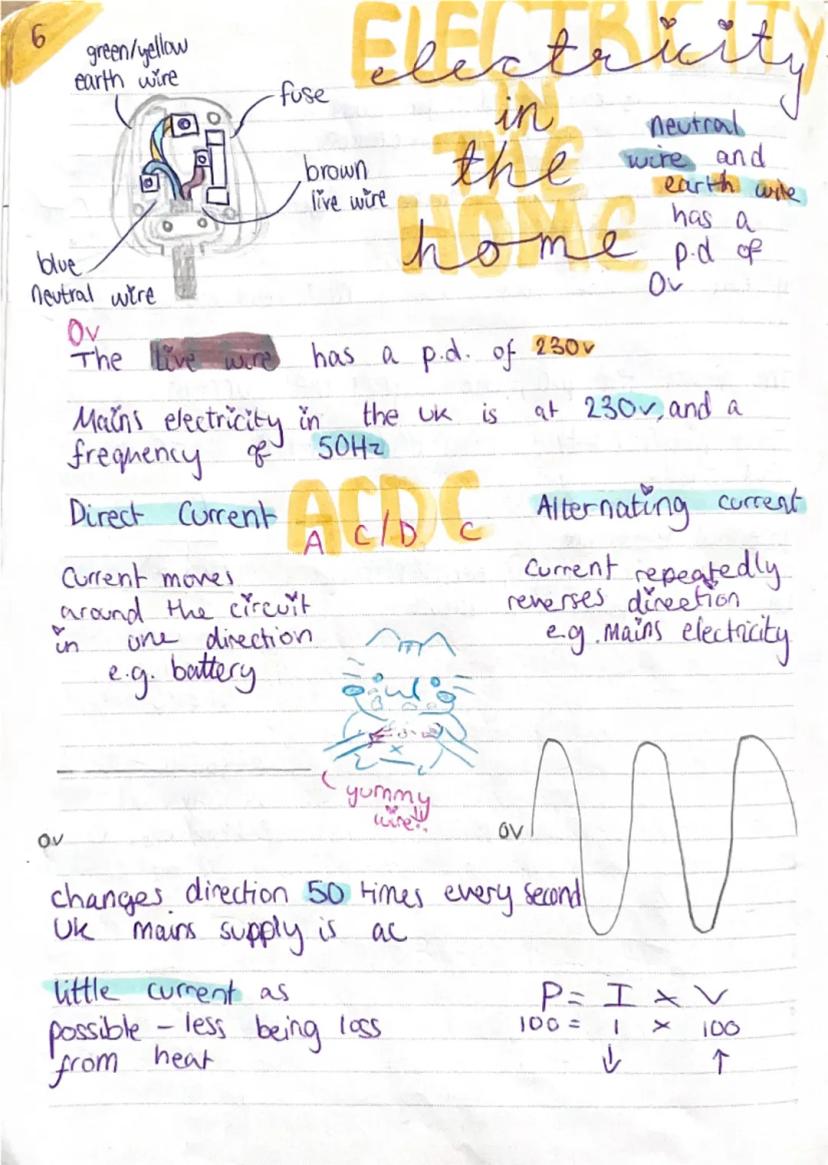 6
ELECTRICITY
IN
THE
HOME
electricity
in
the
home
green/yellow
earth wire
fuse
brown
live wire
blue
neutral wire
neutral
wire and
earth wire
has a
p.d of
0v
0v
The live wire has a p.d. of 230v
Mains electricity in the UK is at 230v, and a
frequency of 50Hz
Direct current
ACDC
A C/D C
Alternating current
Current moves
around the circuit
in one direction
e.g. battery
Current repeatedly
reverses direction
e.g. Mains electricity
yummy
wire!!
0v
0v
changes direction 50 times every second
UK mains supply is ac
little current as
possible - less being loss
from heat
P = I × V
100 = 1 × 100
↓ ↑